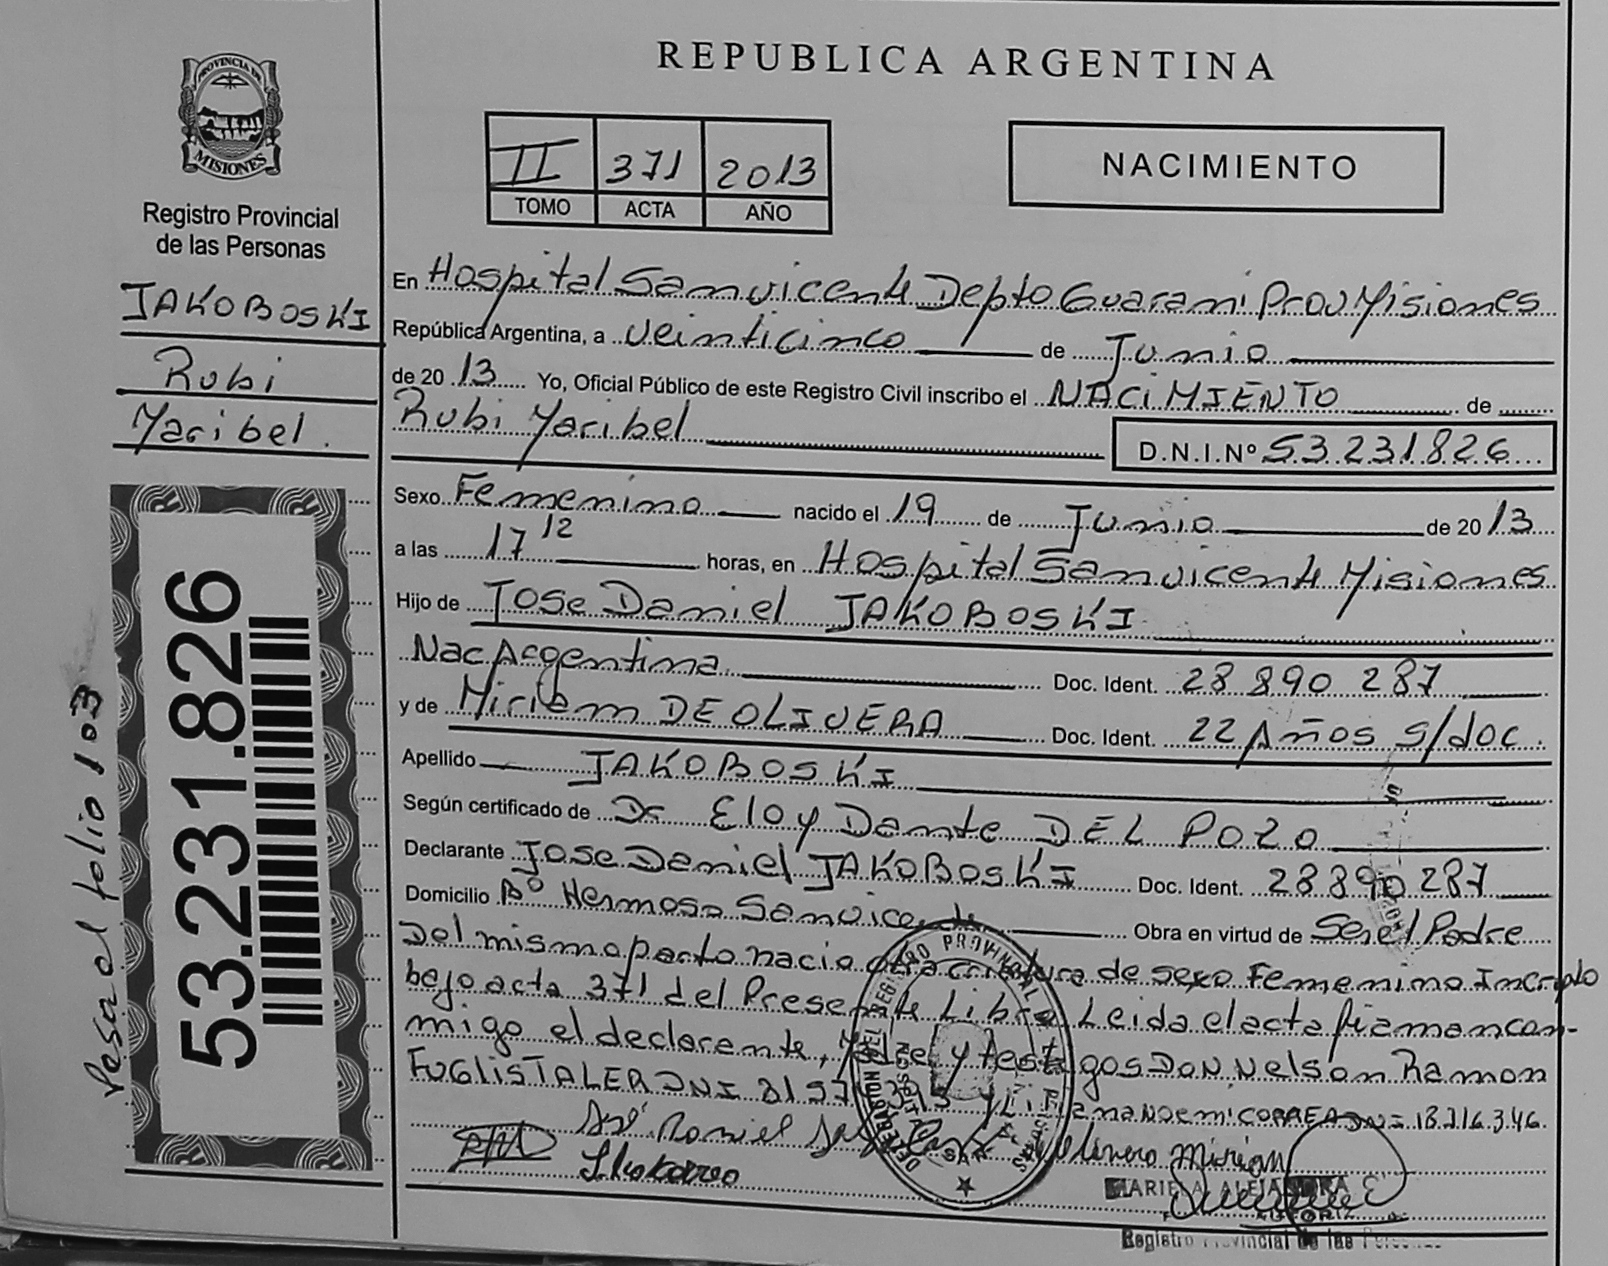 PROVINCIA DE
MISIONES
Registro Provincial
de las Personas
JAKOBOSKI
Rubi
Maribel.
53.231.826
Pasa al folio 103
REPUBLICA ARGENTINA
II 371 2013
TOMO ACTA AÑO
NACIMIENTO
En Hospital San vicente Depto Guarani Prov Misiones
República Argentina, a veinticinco de Junio
de 20 13 Yo, Oficial Público de este Registro Civil inscribo el NACIMIENTO de
Rubi Maribel D.N.I.Nº 53.231.826
Sexo Femenino nacido el 19 de Junio de 20 13
a las 17 12 horas, en Hospital San vicente Misiones
Hijo de Jose Daniel JAKOBOSKI
Nac Argentina Doc. Ident. 28 890 287
y de Miriam DE OLIVERA Doc. Ident. 22 Años s/doc.
Apellido JAKOBOSKI
Según certificado de Dr Eloy Dante DEL POZO
Declarante Jose Daniel JAKOBOSKI Doc. Ident. 28890287
Domicilio Bº Hermoso San vicente Obra en virtud de Ser el Padre
Del mismo parto nacio otra criatura de sexo Femenino Incripto
bajo acta 371 del Presente Libro Leida el acta firman con-
migo el declarante, Madre y testigos DON Nelson Ramon
FUGLISTALER DNI y Liliana NOEMI CORREA DNI 18.216.346.
Olivera Miriam
MARIE A. ALEJANDRA
Registro Provincial de las Personas
DELEGACION DEL REGISTRO PROVINCIAL DE LAS PERSONAS